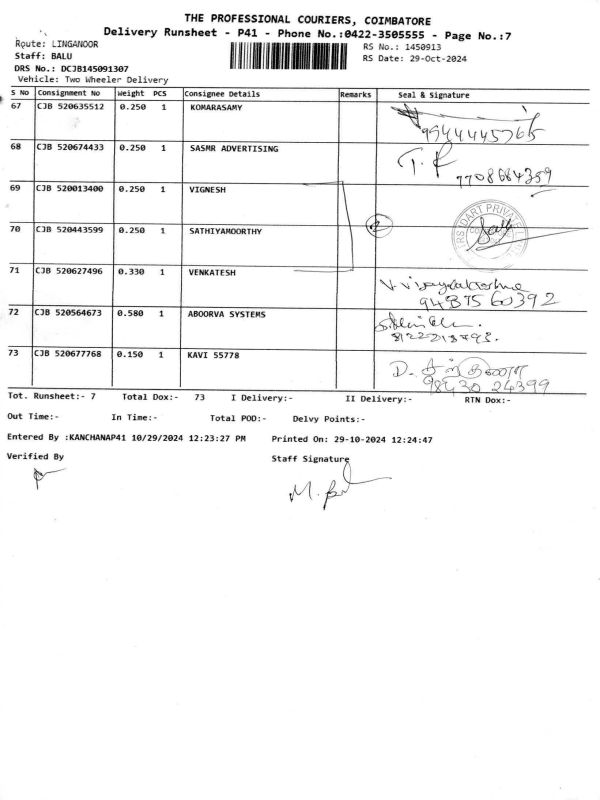 THE PROFESSIONAL COURIERS, COIMBATORE
Delivery Runsheet - P41 - Phone No.:0422-3505555 - Page No.:7
Route: LINGANOOR
RS No.: 1450913
Staff: BALU
RS Date: 29-Oct-2024
DRS No.: DCJB145091307
Vehicle: Two Wheeler Delivery
S No Consignment No Weight PCS Consignee Details Remarks Seal & Signature
67 CJB 520635512 0.250 1 KOMARASAMY
68 CJB 520674433 0.250 1 SASMR ADVERTISING
7708684359
69 CJB 520013400 0.250 1 VIGNESH
70 CJB 520443599 0.250 1 SATHIYAMOORTHY
2
71 CJB 520627496 0.330 1 VENKATESH
9487560392
72 CJB 520564673 0.580 1 ABOORVA SYSTEMS
73 CJB 520677768 0.150 1 KAVI 55778
Tot. Runsheet:- 7 Total Dox:- 73 I Delivery:- II Delivery:- RTN Dox:-
Out Time:- In Time:- Total POD:- Delvy Points:-
Entered By :KANCHANAP41 10/29/2024 12:23:27 PM Printed On: 29-10-2024 12:24:47
Verified By Staff Signature